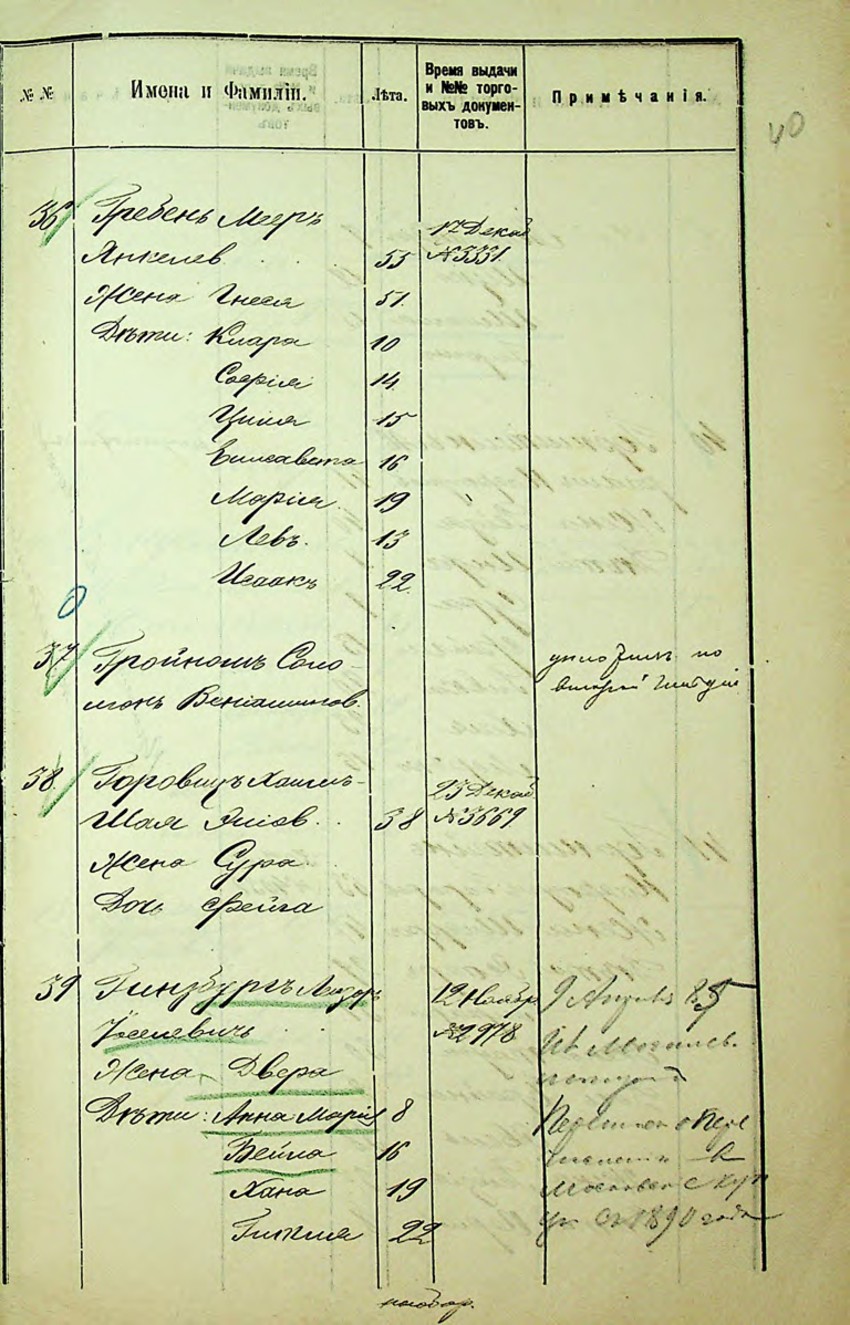 40
№ №
Имена и Фамиліи.
Лѣта.
Время выдачи
и №№ торго-
выхъ докумен-
товъ.
Примѣчанія.
36 Гребень Мееръ
Янкелев. 55
17 Декаб
№ 3331.
Жена Гнеся 51.
Дѣти: Клара 10
Софія 14
Циля 15
Елисавета 16
Марія 19
Левъ. 13
Исаакъ 22
37 Гройномъ Соло-
монъ Веніаминов.
по
второй гильдіи
38. Горовицъ Хаимъ-
Шая 38
23 Декаб
№ 3669
Жена Сура
Дочь Фейга
39 Гинзбургъ Лазорь
Іоселевичъ
12 Ноябр.
№ 2978
Жена Двера
Дѣти: Анна Марія 8
Бейла 16
Хана 19
22
9
съ 1890 года